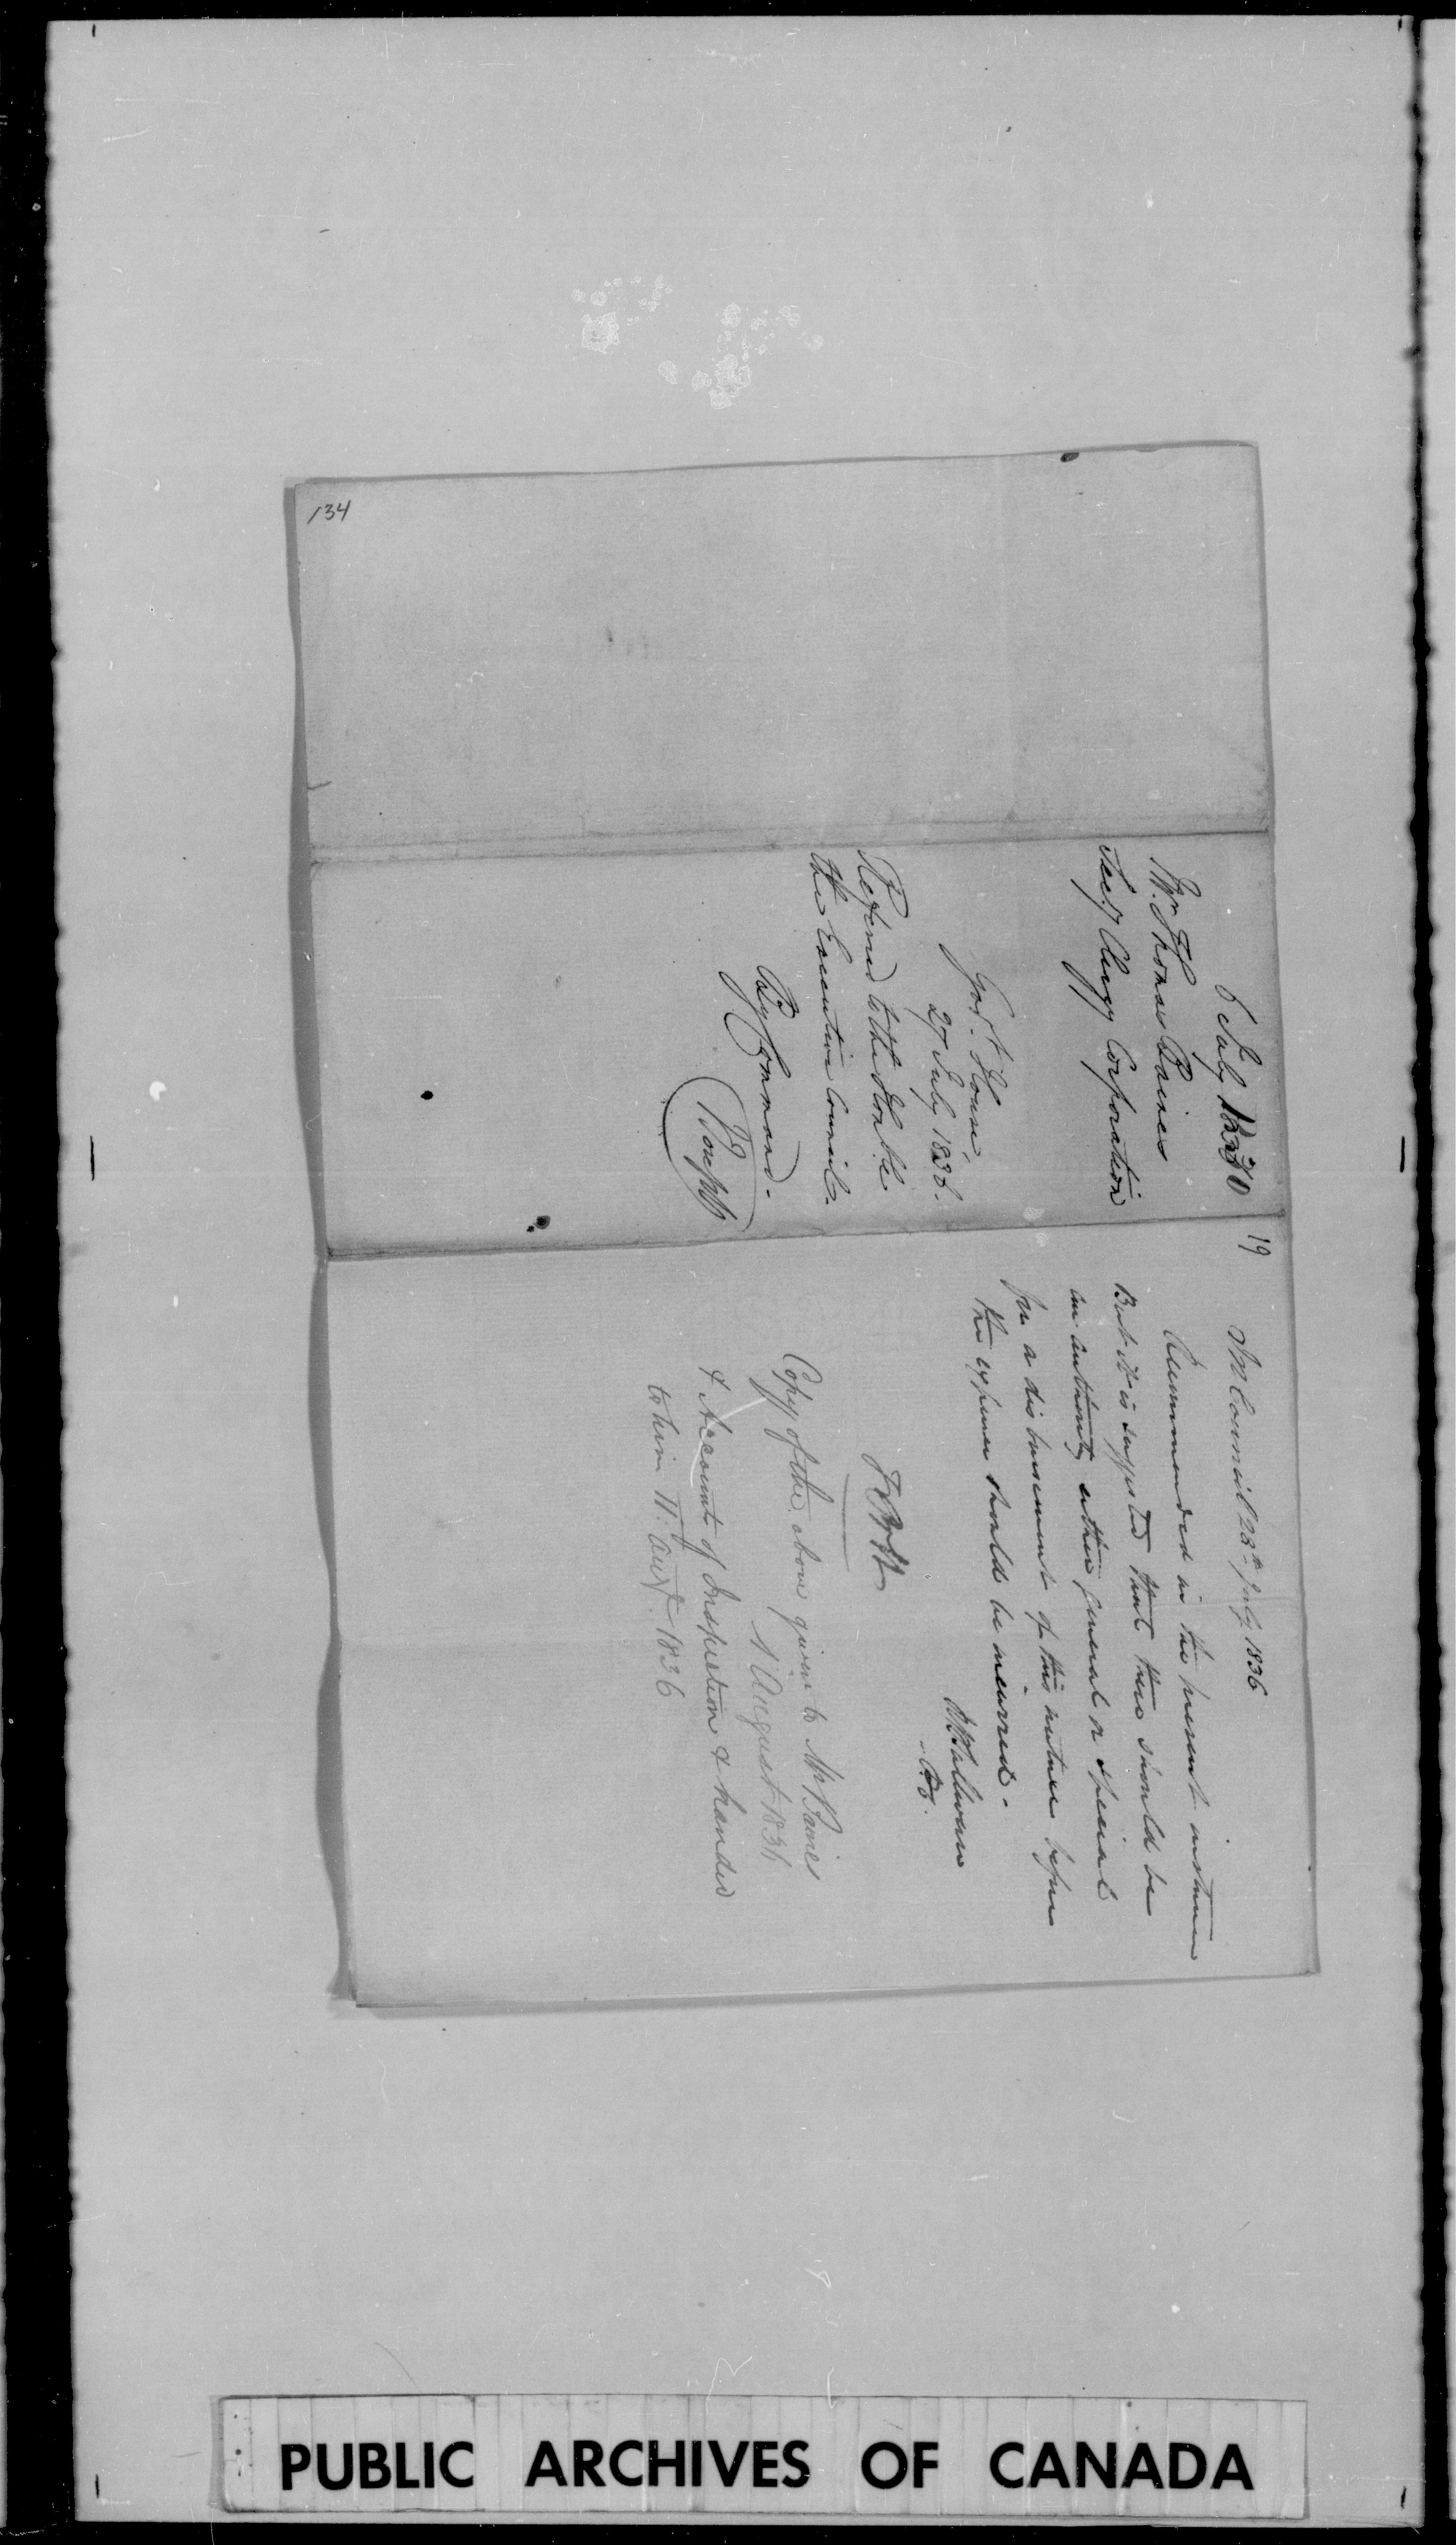 134
6 July 1830
Mr. Thomas Baines
Secy. Clergy Corporation
Govt. House,
27 July 1836.
Referred to the Honble
the Executive Council.
By Command.
J Joseph
19
In Council 28th July 1836
Recommended in the present instance
But it is suggested that there should be
an authority either general or special
for a disbursement of this nature before
the expense should be incurred.
R B Sullivan
P.C.
F B H
Copy of the above given to Mr Baines
1 August 1836
& Accounts of Inspection & handed
to him 11. Augt. 1836
PUBLIC ARCHIVES OF CANADA